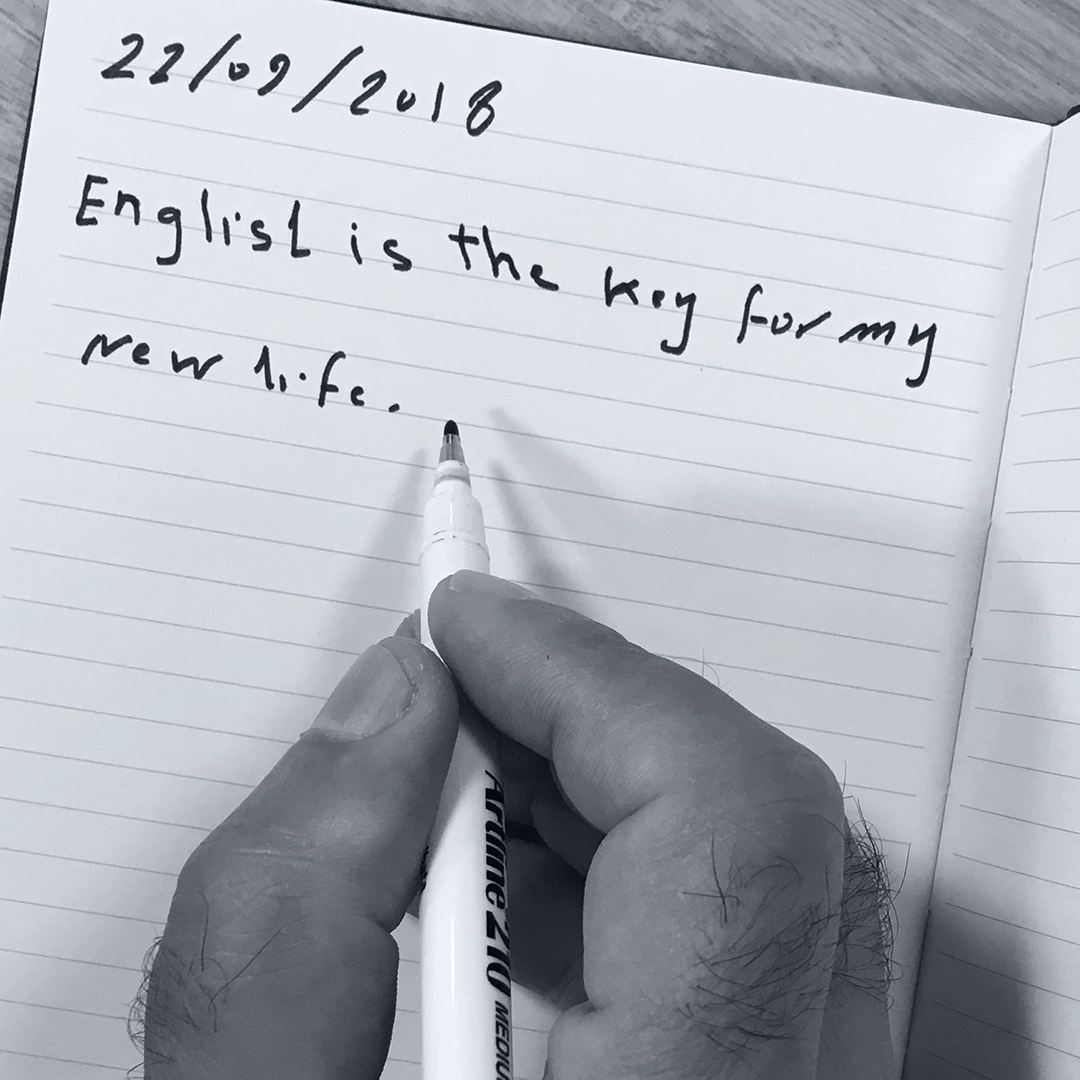 22/09/2018
English is the key for my
new life.
Artline 210 MEDIU